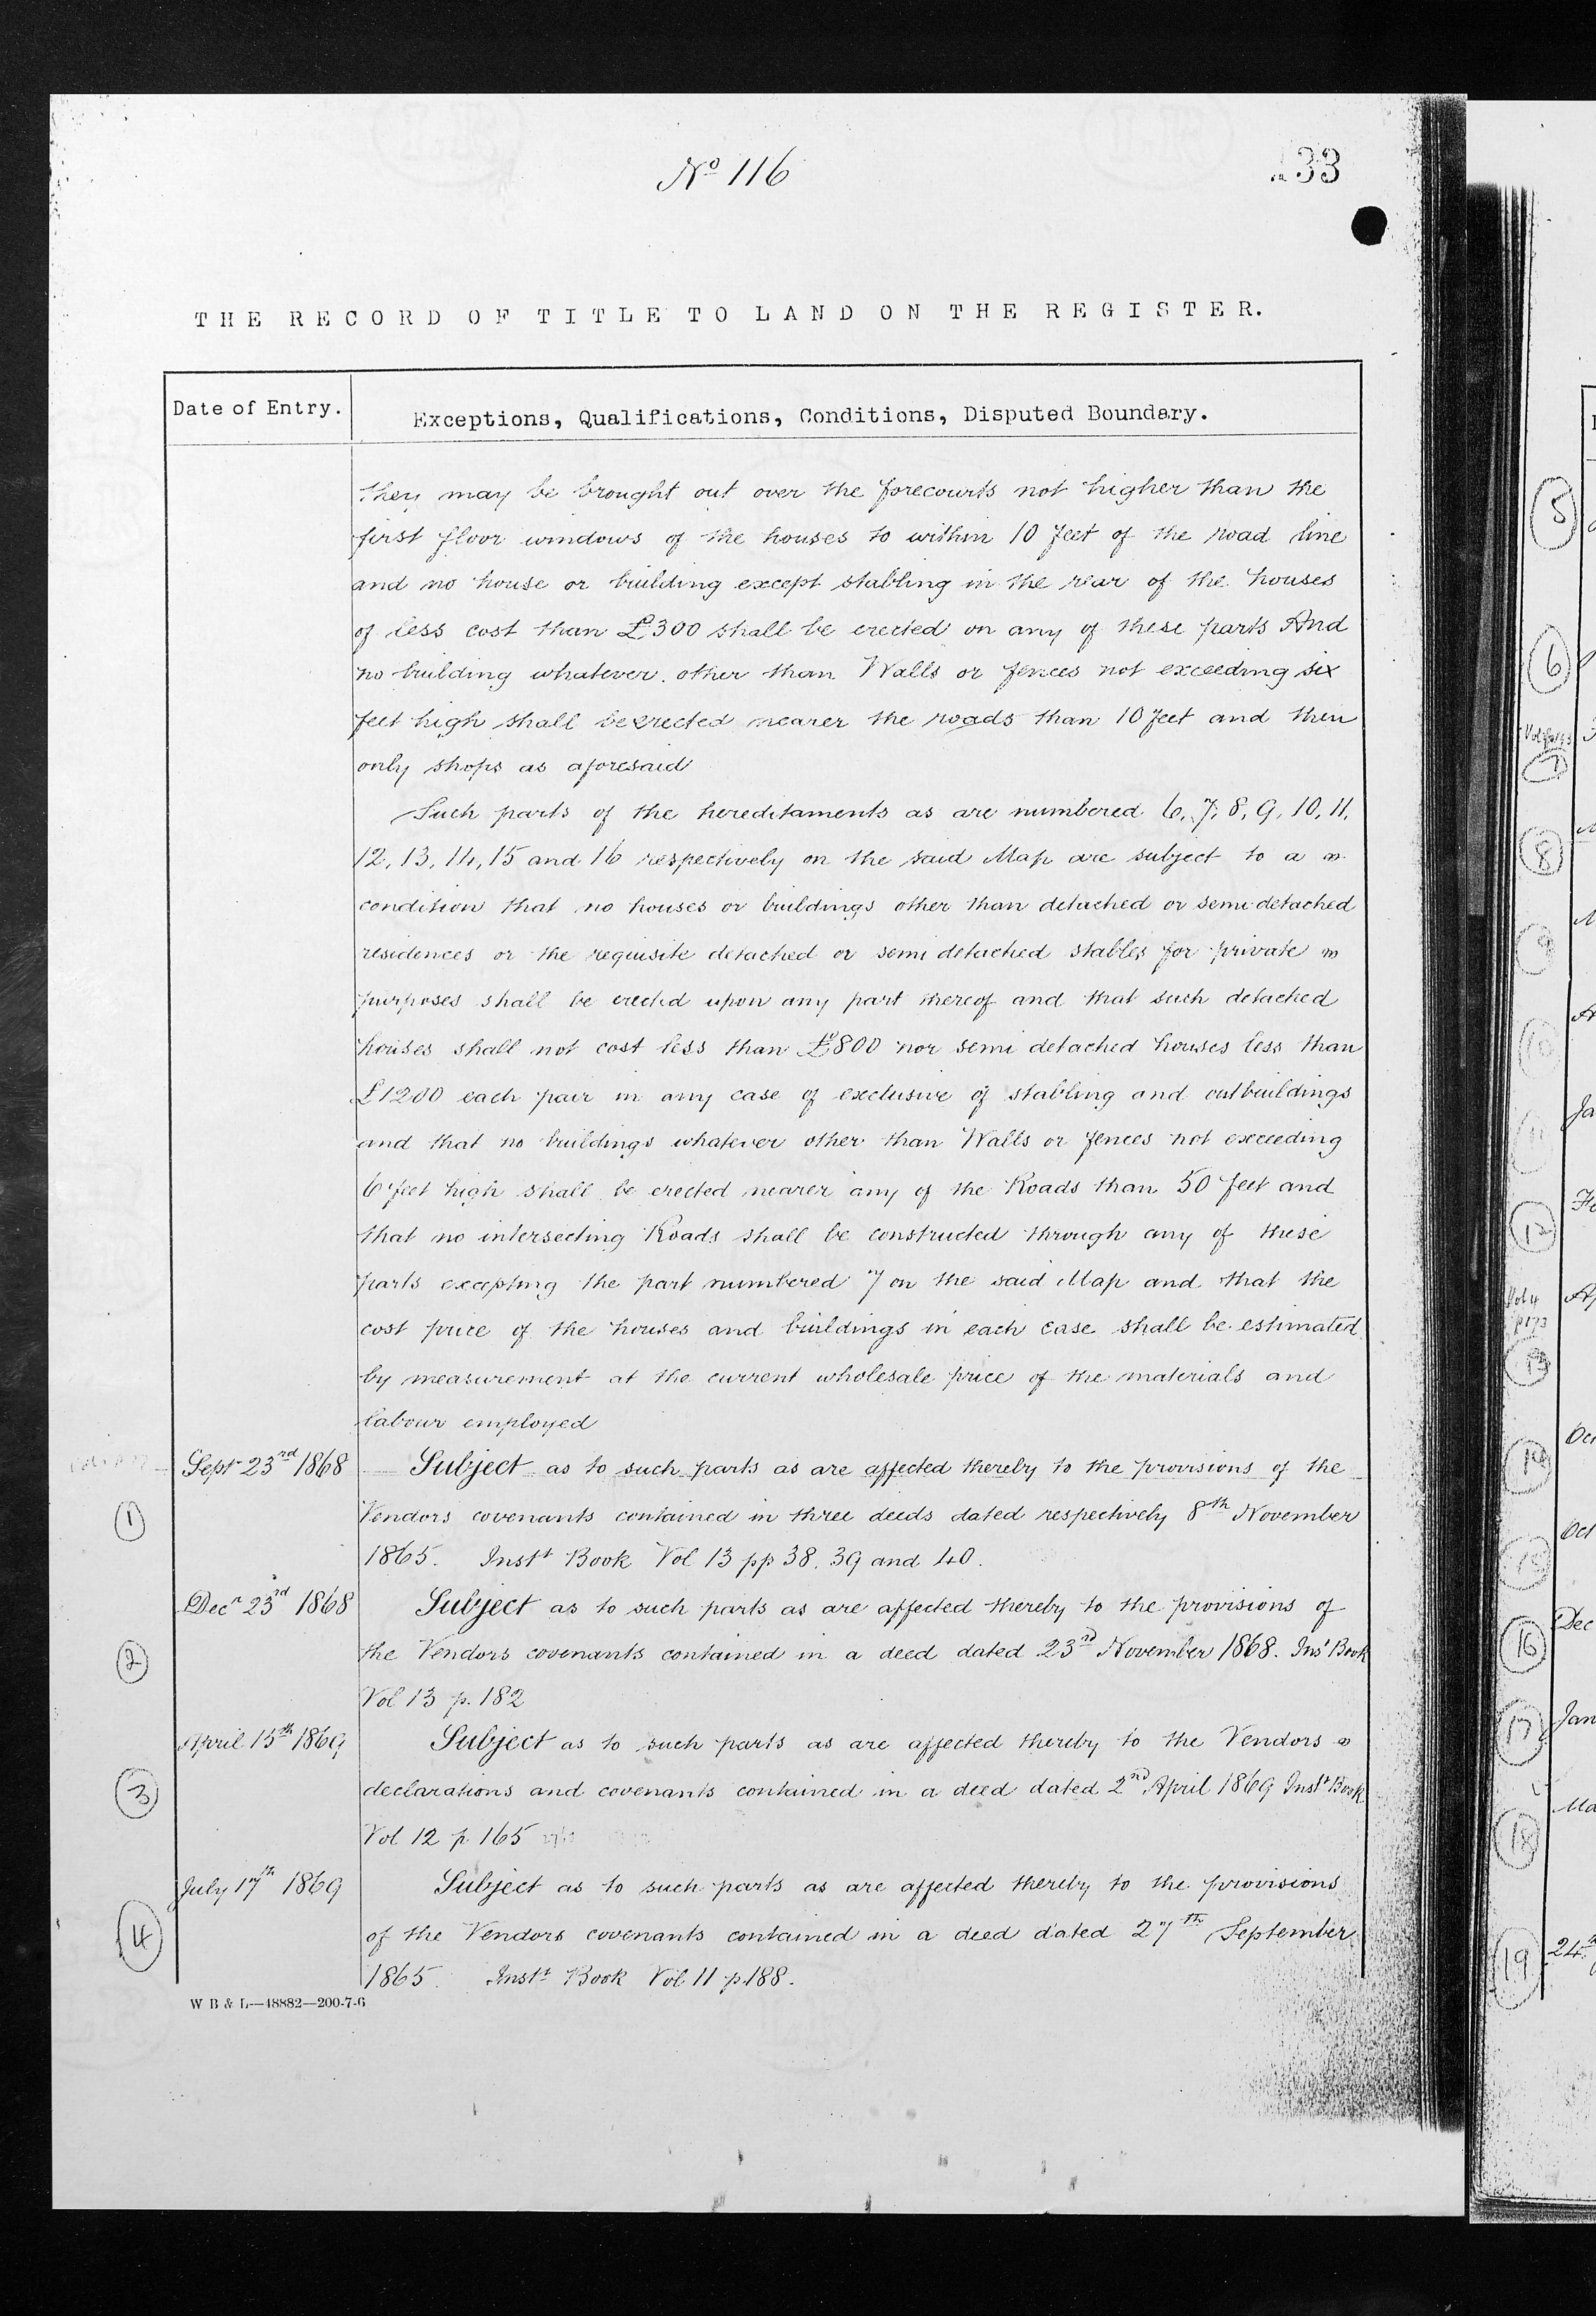 No 116
133
THE RECORD OF TITLE TO LAND ON THE REGISTER.
Date of Entry.
Exceptions, Qualifications, Conditions, Disputed Boundary.
they may be brought out over the forecourts not higher than the
first floor windows of the houses to within 10 feet of the road line
and no house or building except stabling in the rear of the houses
of less cost than £300 shall be erected on any of these parts And
no building whatever other than Walls or fences not exceeding six
feet high shall be erected nearer the roads than 10 feet and then
only shops as aforesaid
Such parts of the hereditaments as are numbered 6, 7, 8, 9, 10, 11,
12, 13, 14, 15 and 16 respectively on the said Map are subject to a
condition that no houses or buildings other than detached or semi detached
residences or the requisite detached or semi detached stables for private
purposes shall be erected upon any part thereof and that such detached
houses shall not cost less than £800 nor semi detached houses less than
£1200 each pair in any case of exclusive of stabling and outbuildings
and that no buildings whatever other than Walls or fences not exceeding
6 feet high shall be erected nearer any of the Roads than 50 feet and
that no intersecting Roads shall be constructed through any of these
parts excepting the part numbered 7 on the said Map and that the
cost price of the houses and buildings in each case shall be estimated
by measurement at the current wholesale price of the materials and
labour employed
Sept 23rd 1868 Subject as to such parts as are affected thereby to the provisions of the
1 Vendors covenants contained in three deeds dated respectively 8th November
1865. Inst Book Vol 13 pp 38, 39 and 40.
Decr 23rd 1868 Subject as to such parts as are affected thereby to the provisions of
2 the Vendors covenants contained in a deed dated 23rd November 1868. Inst Book
Vol 13 p. 182
April 15th 1869 Subject as to such parts as are affected thereby to the Vendors
3 declarations and covenants contained in a deed dated 2nd April 1869 Inst Book
Vol 12 p 165
July 17th 1869 Subject as to such parts as are affected thereby to the provisions
4 of the Vendors covenants contained in a deed dated 27th September
1865. Inst Book Vol 11 p. 188.
W B & L—48882—200-7-6
5
6
7
8
9
10
11
12
13
14
15
16
17
18
19